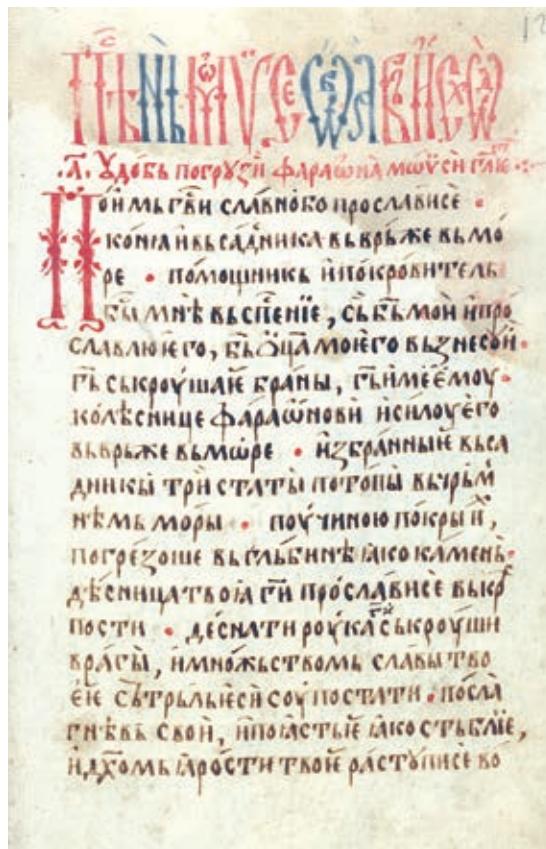 ·А҃· Ꙋдобь погрꙋзи фараѡна мѡѵси гл҃ѥ
Поимь гв҃и славно бо прослависе •
конꙗ и вьсадника вь врьже вь мо
ре • помощникь и покровитель
бы мнѣ вь сп҃сение, сь бь мои и про
славлю ѥго, бь ѡ҃ца моѥго вьзнесоу и •
гь ськроушаѥ браны, гь име ѥмоу •
колѣснице фараѡнови и силоу ѥго
вь врьже вь мѡре • избранныѥ вьса
дникы три статы потопы вь чрьм
нѣмь моры • поучиною покры и,
погрезоше вь гльбинѣ ꙗко камень •
десница твоꙗ ги прослависе вь крѣ
пости • деснаа ти роука ги ськроуши
врагы, и множьствомь славы тво
ѥѥ сьтрьль ѥси соупостати • посла
гнѣвь свои, и поꙗсть ѥ ꙗко стьблиѥ,
и дх҃омь ꙗрости твоѥ растꙋписе во